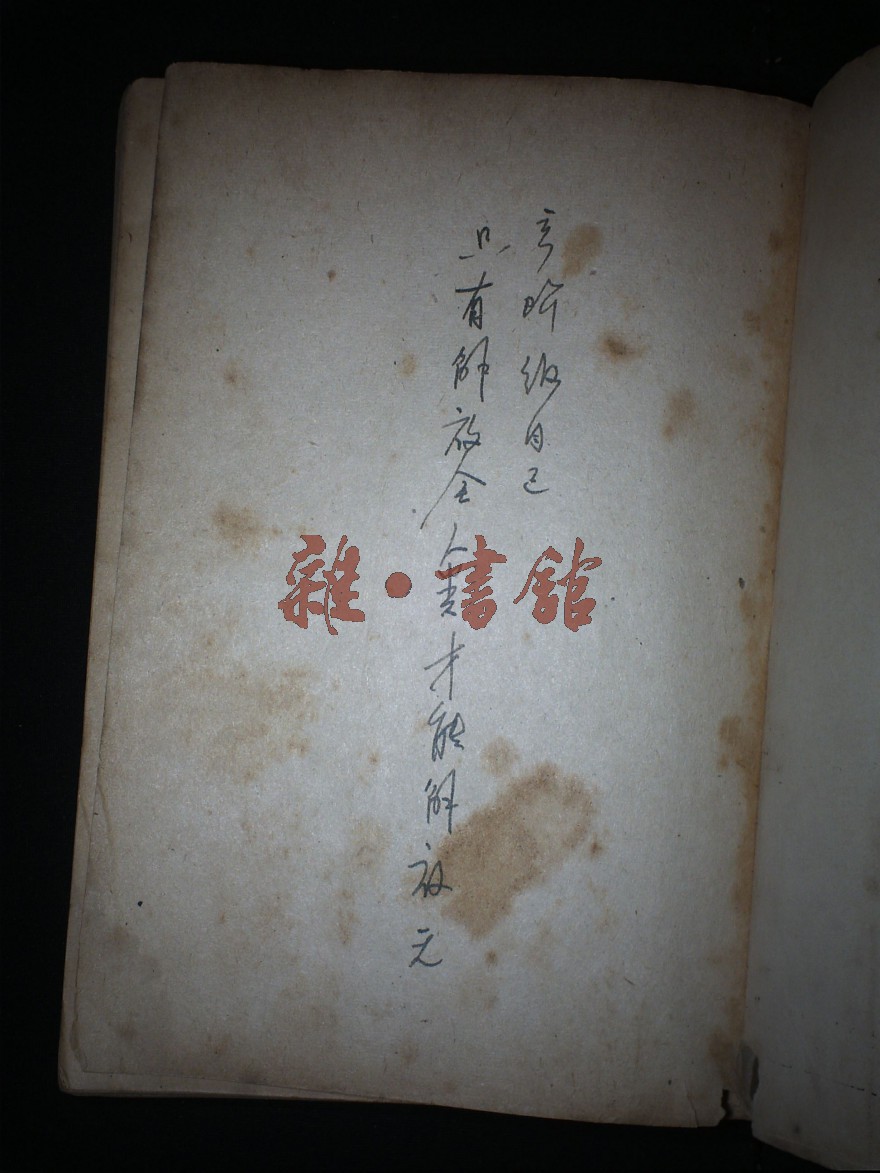 只有解放全人类才能解放无
产阶级自己
雜·書館